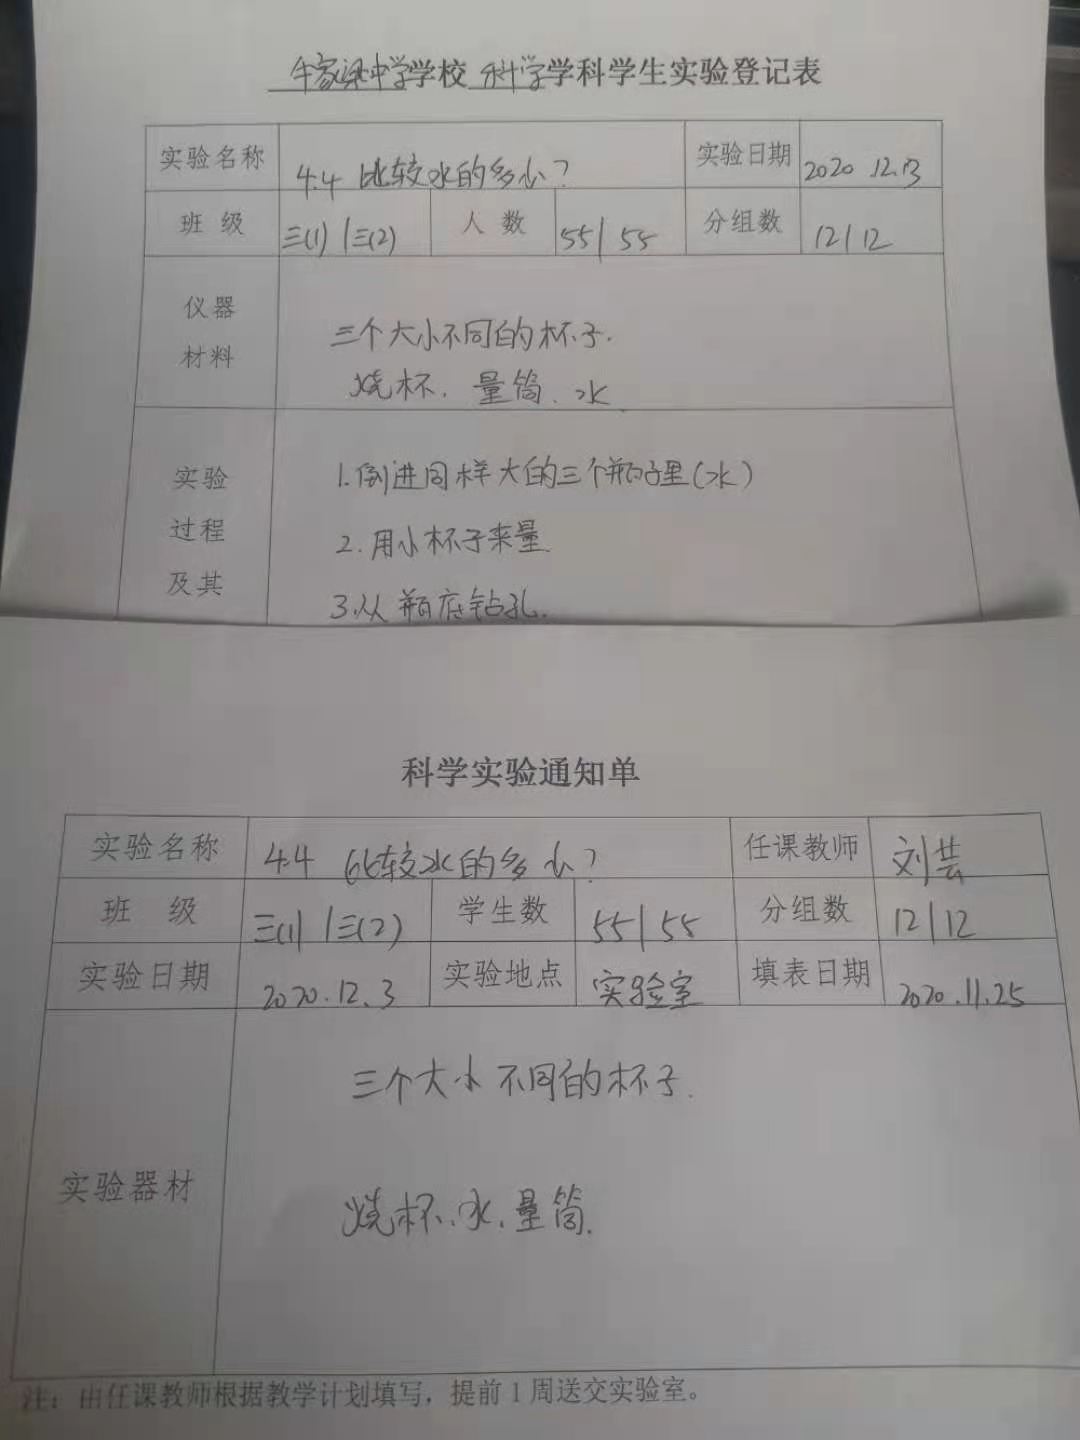 牛家梁中学学校 科学学科学生实验登记表
实验名称 4.4 比较水的多少? 实验日期 2020.12.3
班 级 三(1) |三(2) 人 数 55| 55 分组数 12|12
仪器
材料
三个大小不同的杯子.
烧杯. 量筒. 水
实验
过程
及其
1.倒进同样大的三个瓶子里(水)
2.用小杯子来量
3.从瓶底钻孔.
科学实验通知单
实验名称 4.4 比较水的多少? 任课教师 刘芸
班 级 三(1) |三(2) 学生数 55|55 分组数 12|12
实验日期 2020.12.3 实验地点 实验室 填表日期 2020.11.25
实验器材
三个大小不同的杯子.
烧杯.水.量筒.
注：由任课教师根据教学计划填写，提前1周送交实验室。